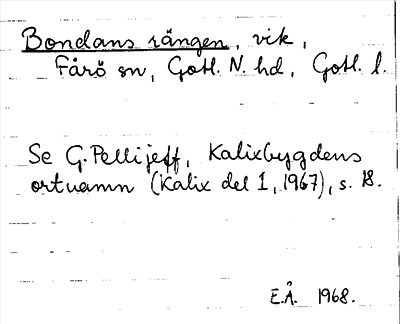 Bondans rängen, vik,
Fårö sn, Gotl. N. hd, Gotl. l.
Se G. Pellijeff, Kalixbygdens
ortnamn (Kalix del 1, 1967), s. 18.
E.Å. 1968.